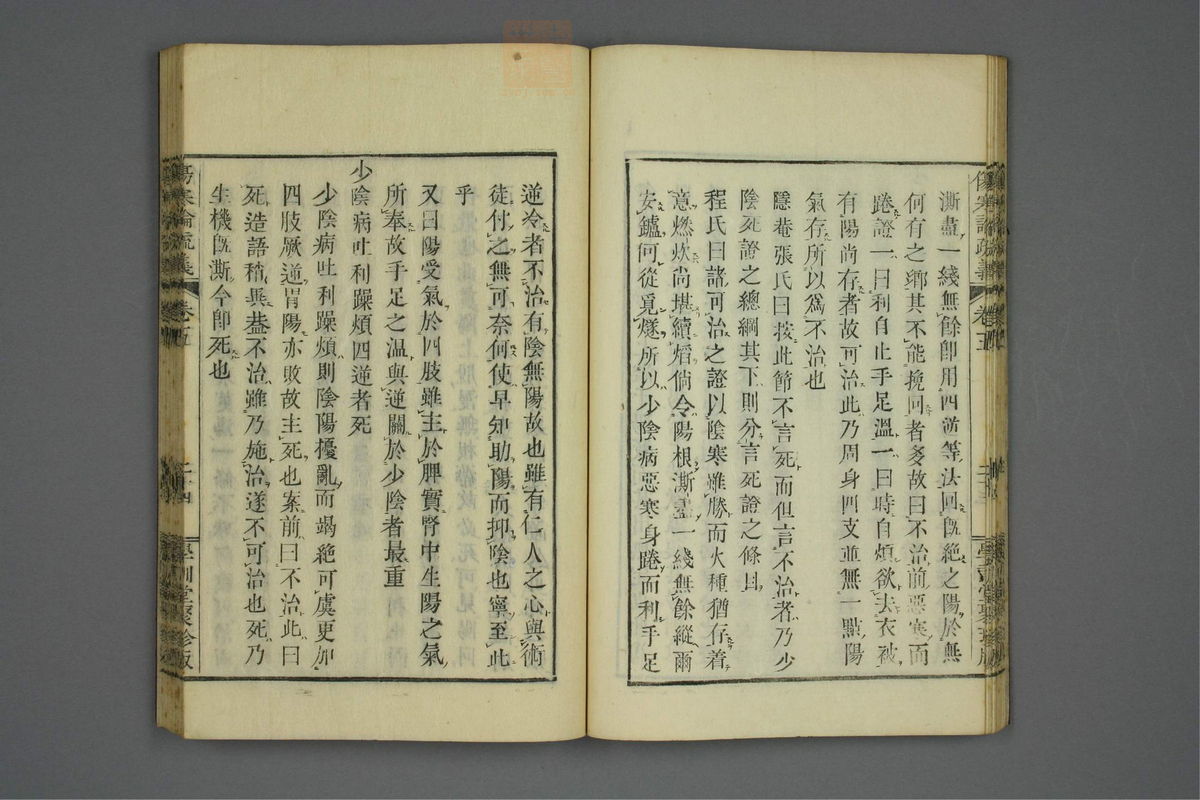 傷寒論疏義 卷五 學訓堂聚珍版
澌盡一綫無餘卽用四逆等法回旣絶之陽於無
何有之鄕其不能挽回者多故曰不治前惡寒而
踡證一曰利自止手足溫一曰時自煩欲去衣被
有陽尚存者故可治此乃周身四支並無一點陽
氣存所以爲不治也
隱菴張氏曰按此節不言死而但言不治者乃少
陰死證之總綱其下則分言死證之條目
程氏曰諸可治之證以陰寒雖勝而火種猶存着
意燃炊尚堪續熖倘令陽根澌盡一綫無餘縱爾
安鑪何從覓燧所以少陰病惡寒身踡而利手足
逆冷者不治有陰無陽故也雖有仁人之心與術
徒付之無可奈何使早知助陽而抑陰也寧至此
乎
又曰陽受氣於四肢雖主於脾實腎中生陽之氣
所奉故手足之温與逆關於少陰者最重
少陰病吐利躁煩四逆者死
少陰病吐利躁煩則陰陽擾亂而竭絶可虞更加
四肢厥逆胃陽亦敗故主死也案前曰不治此曰
死造語稍異葢不治雖乃施治遂不可治也死乃
生機旣澌今卽死也
傷寒論疏義 卷五 二十四 學訓堂聚珍版